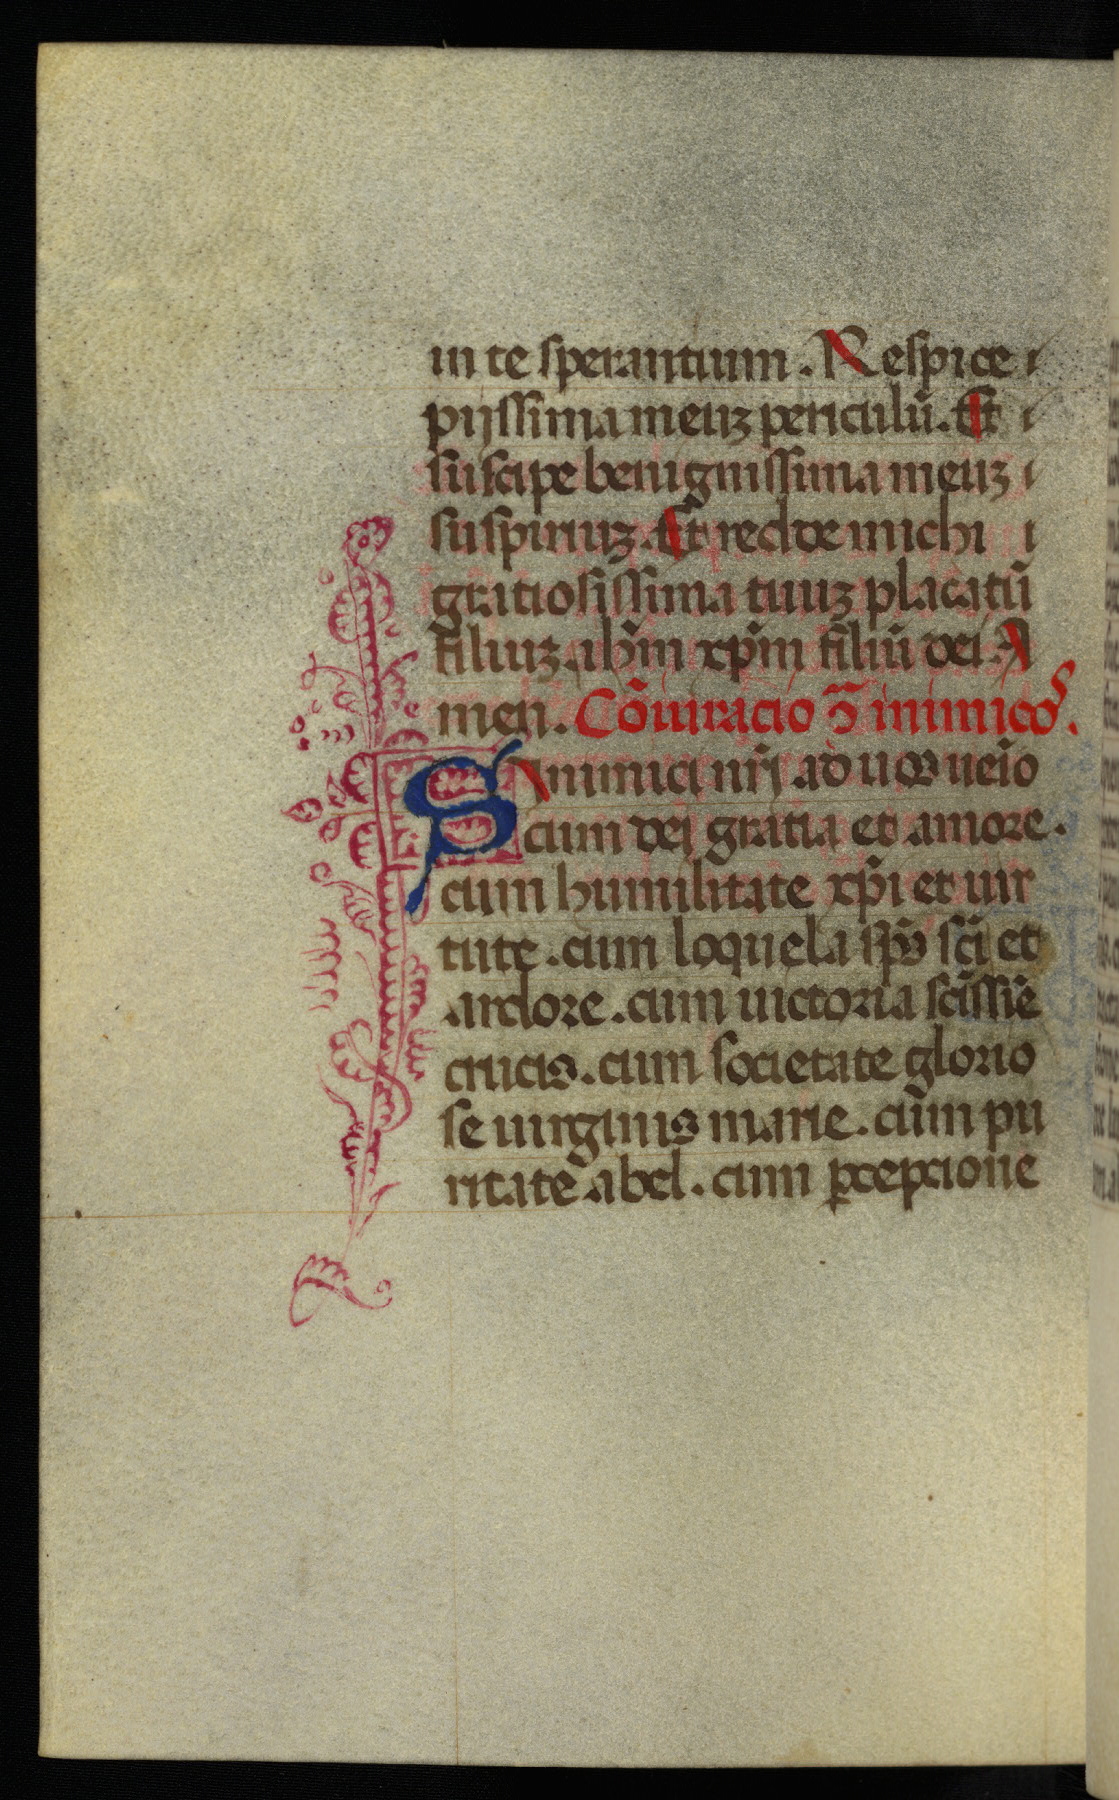 in te sperantium. Respice
pijssima meuʒ periculũ. Et
suscipe benignissima meuʒ
suspiriuʒ. Et redde michi
gratiosissima tuuʒ placatũ
filiuʒ. ihm̃ xp̃m filiũ dei. A
men. Cõiuracio ↄ̃ inimicos.
Sinimici nr̃j ad uos uẽio
cum dej gratia et amore.
cum humilitate xp̃i et uir
tute. cum loquela sp̃s sc̃i et
ardore. cum uictoria sc̃issiẽ
crucis. cum societate glorio
se uirginis marie. cum pu
ritate abel. cum ꝑcepcione